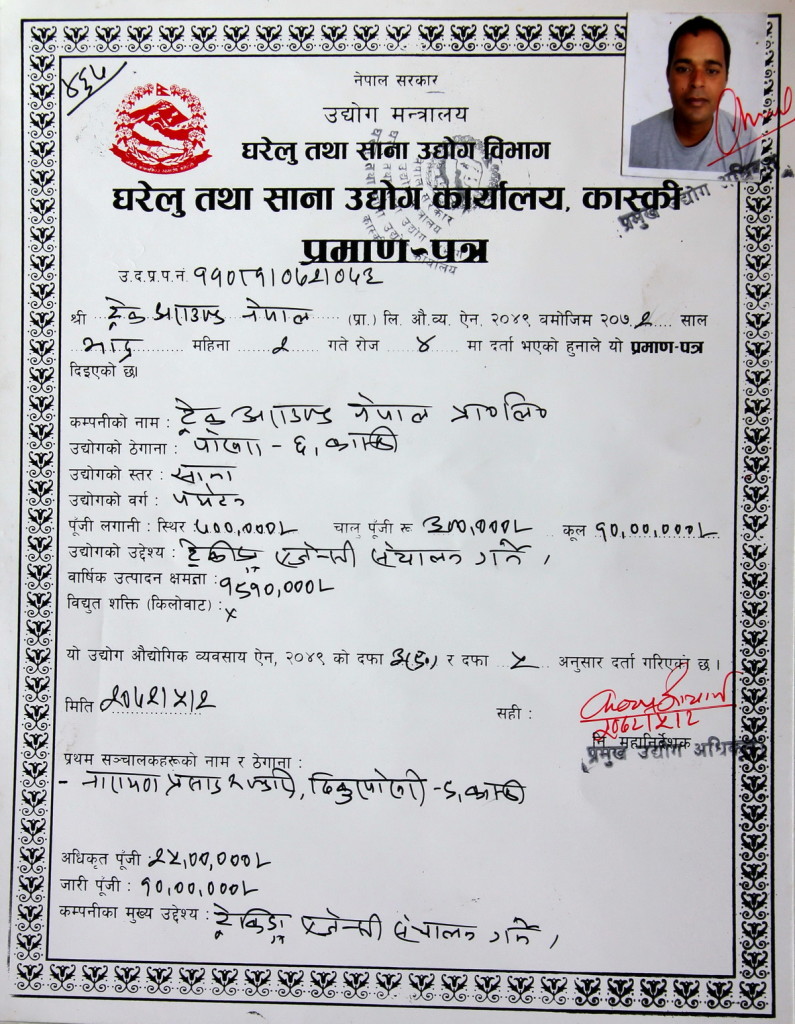 ४६५
नेपाल सरकार
उद्योग मन्त्रालय
घरेलु तथा साना उद्योग विभाग
घरेलु तथा साना उद्योग कार्यालय, कास्की
प्रमाण-पत्र
प्रमुख उद्योग अधिकृत
उ.द.प्र.प.नं.
श्री ट्रेक अराउण्ड नेपाल (प्रा.) लि. औ.व्य. ऐन, २०४९ बमोजिम २०७२ साल
भाद्र महिना २ गते रोज ४ मा दर्ता भएको हुनाले यो प्रमाण-पत्र
दिइएको छ।
कम्पनीको नाम : ट्रेक अराउण्ड नेपाल प्रा०लि०
उद्योगको ठेगाना : पोखरा - ६, कास्की
उद्योगको स्तर : साना
उद्योगको वर्ग : पर्यटन
पूँजी लगानी : स्थिर ७००,०००/- चालु पूँजी रू ३००,०००/- कूल १०,००,०००/-
उद्योगको उद्देश्य : ट्रेकिङ्ग एजेन्सी संचालन गर्ने,
वार्षिक उत्पादन क्षमता :
विद्युत शक्ति (किलोवाट) : x
यो उद्योग औद्योगिक व्यवसाय ऐन, २०४९ को दफा र दफा अनुसार दर्ता गरिएको छ ।
मिति २०७२।५।२
सही :
२०७२।५।२
महानिर्देशक
प्रमुख उद्योग अधिकृत
प्रथम सञ्चालकहरूको नाम र ठेगाना :
- नारायण प्रसाद कास्की
अधिकृत पूँजी : २५,००,०००/-
जारी पूँजी : १०,००,०००/-
कम्पनीका मुख्य उद्देश्य : ट्रेकिङ्ग एजेन्सी संचालन गर्ने,